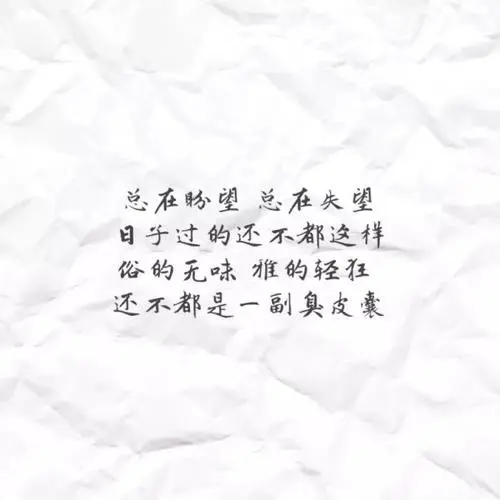 总在盼望 总在失望
日子过的还不都这样
俗的无味 雅的轻狂
还不都是一副臭皮囊